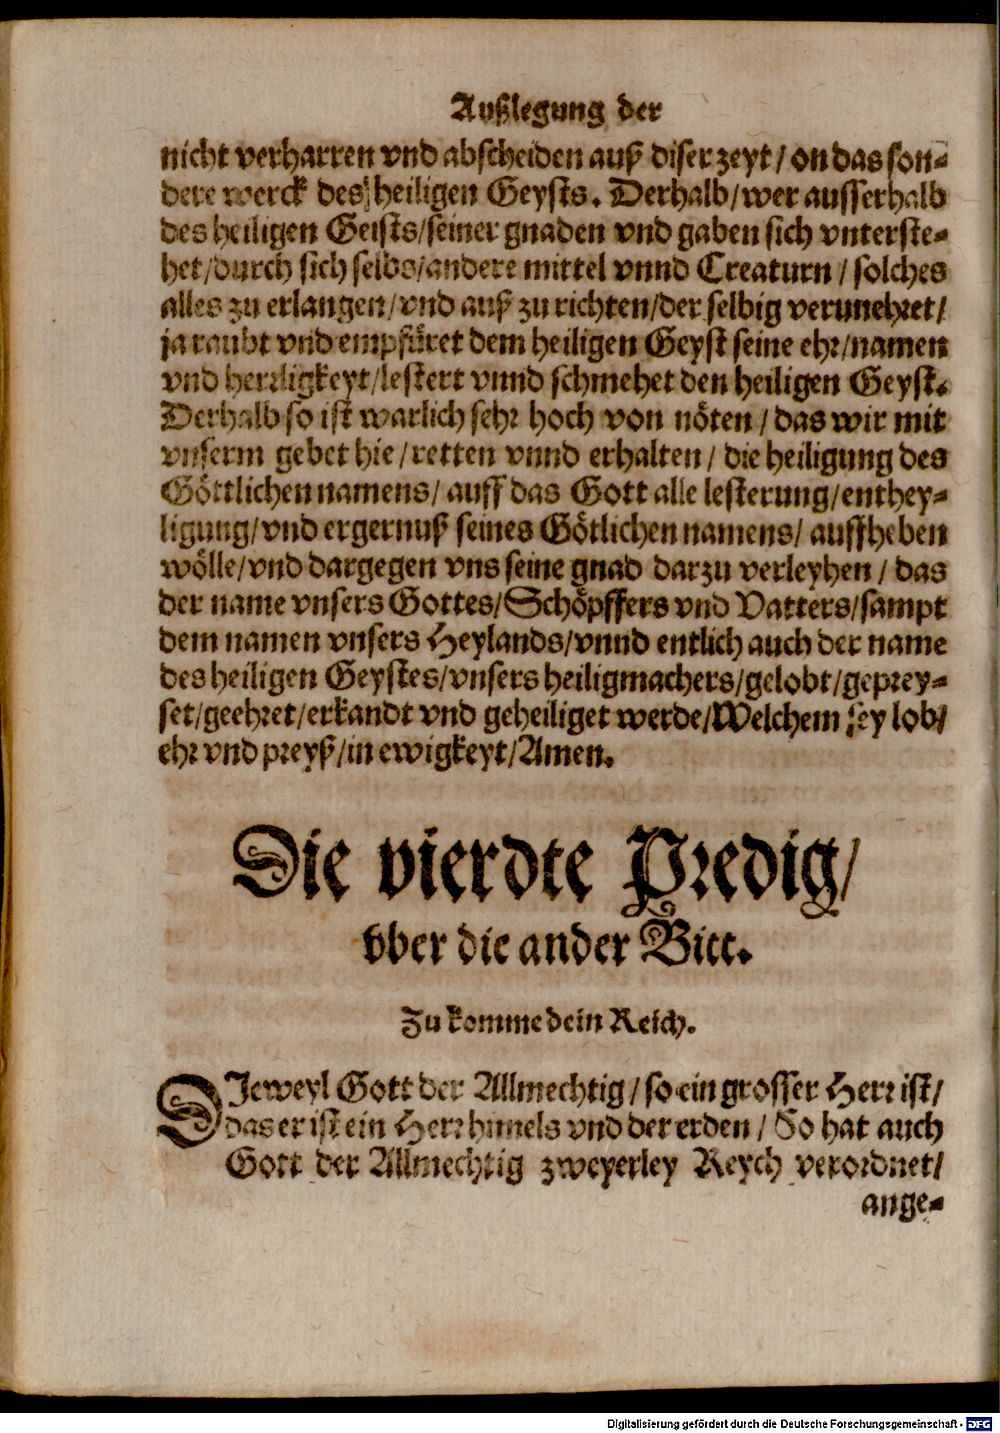 Außlegung der
nicht verharren vnd abscheiden auß diser zeyt / on das son-
dere werck des heiligen Geysts. Derhalb/wer ausserhalb
des heiligen Geists/seiner gnaden vnd gaben sich vnterste-
het/durch sich selbs/andere mittel vnnd Creaturn / solches
alles zu erlangen/vnd auß zu richten/der selbig verunehret/
ja raubt vnd empfüret dem heiligen Geyst seine ehr/namen
vnd herrligkeyt/lestert vnnd schmehet den heiligen Geyst.
Derhalb so ist warlich sehr hoch von nöten / das wir mit
vnserm gebet hie/retten vnnd erhalten / die heiligung des
Göttlichen namens/ auff das Gott alle lesterung/enthey-
ligung/vnd ergernuß seines Götlichen namens/ auffheben
wölle/vnd dargegen vns seine gnad darzu verleyhen / das
der name vnsers Gottes/Schöpffers vnd Vatters/sampt
dem namen vnsers Heylands/vnnd entlich auch der name
des heiligen Geystes/vnsers heiligmachers/gelobt/geprey-
set/geehret/erkandt vnd geheiliget werde/Welchem sey lob/
ehr vnd preyß/in ewigkeyt/Amen.
Die vierdte Predig/
vber die ander Bitt.
Zu komme dein Reich.
DIeweyl Gott der Allmechtig / so ein grosser Herr ist/
das er ist ein Herr himels vnd der erden / So hat auch
Gott der Allmechtig zweyerley Reych verordnet/
ange-
Digitalisierung gefördert durch die Deutsche Forschungsgemeinschaft - DFG